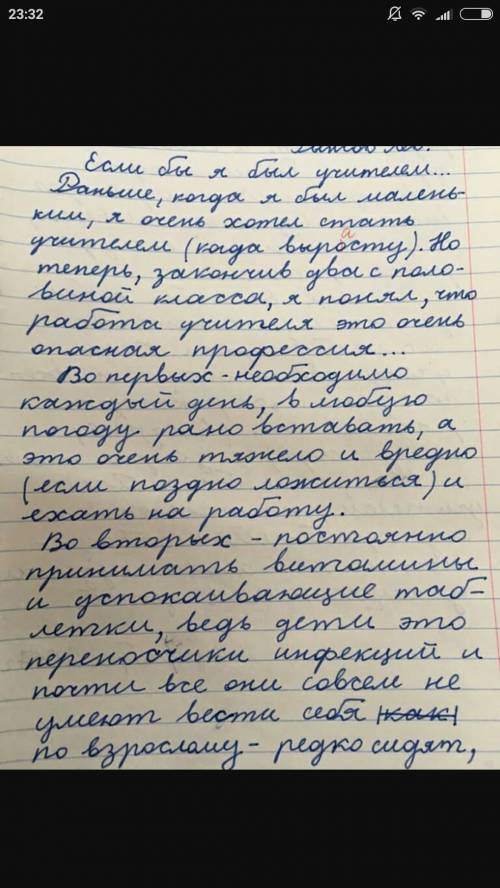 23:32
Если бы я был учителем...
Раньше, когда я был малень-
ким, я очень хотел стать
учителем (када выросту). Но
теперь, закончив два с поло-
виной класса, я понял, что
работа учителя это очень
опасная профессия...
Во первых - необходимо
каждый день, в любую
погоду рано вставать, а
это очень тяжело и вредно
(если поздно ложиться) и
ехать на работу..
Во вторых - постоянно
принимать витамины
и успокаивающие таб-
летки, ведь дети это
переносчики инфекций и
почти все они совсем не
умеют вести себя как
по взрослому - редко сидят,